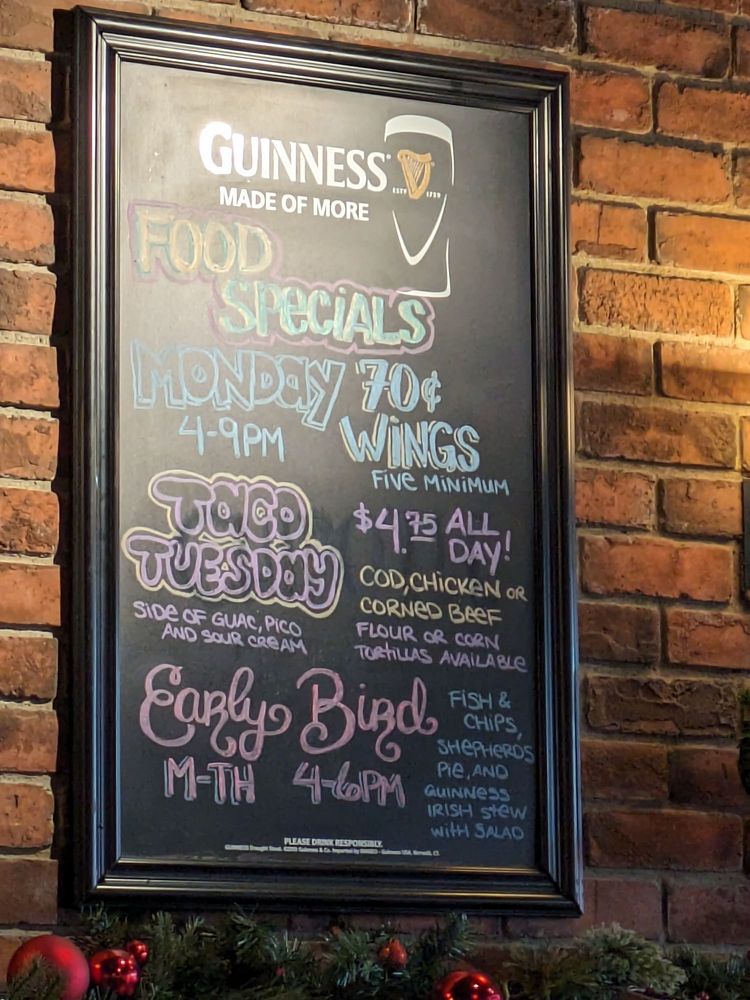 GUINNESS®
ESTD 1759
MADE OF MORE
FOOD
SPECIALS
MONDAY
4-9PM
70¢
WINGS
FIVE MINIMUM
TACO
TUESDAY
SIDE OF GUAC, PICO
AND SOUR CREAM
$4.75 ALL
DAY!
COD, CHICKEN OR
CORNED BEEF
FLOUR OR CORN
TORTILLAS AVAILABLE
Early Bird
M-TH 4-6PM
FISH &
CHIPS,
SHEPHERDS
PIE, AND
GUINNESS
IRISH STEW
WITH SALAD
PLEASE DRINK RESPONSIBLY.